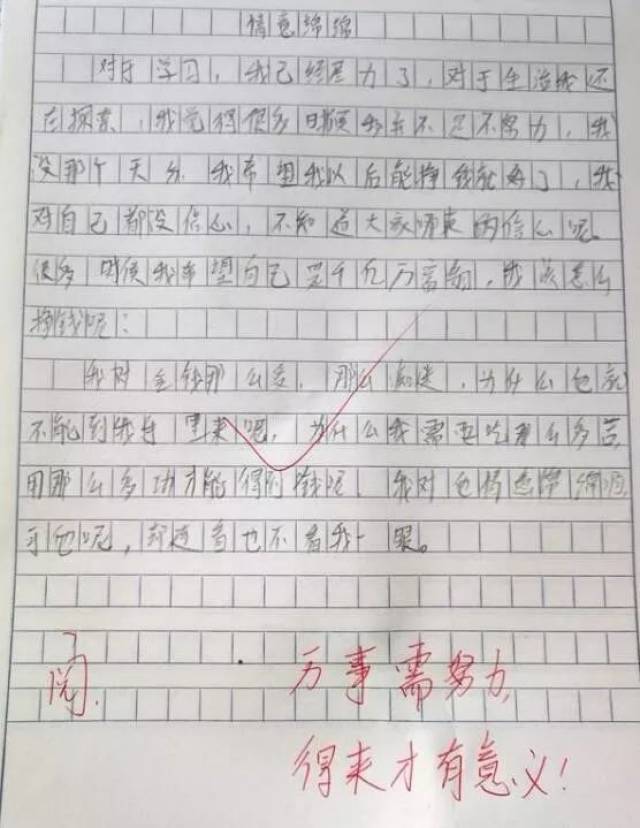 情意绵绵
对于学习，我已经尽力了，对于生活我还
在探索，我觉得很多时候我并不是不努力，我
没那个天分，我希望我以后能挣钱就好了，我
对自己都没信心，不知道大家哪来的信心呢。
很多时候我希望自己是千亿万富翁，我该怎么
挣钱呢？
我对金钱那么爱，那么痴迷，为什么它就
不能到我手里来呢，为什么我需要吃那么多苦
用那么多功才能得到钱呢，我对它情意绵绵
可它呢，却连看也不看我一眼。
阅.
万事需努力，
得来才有意义！